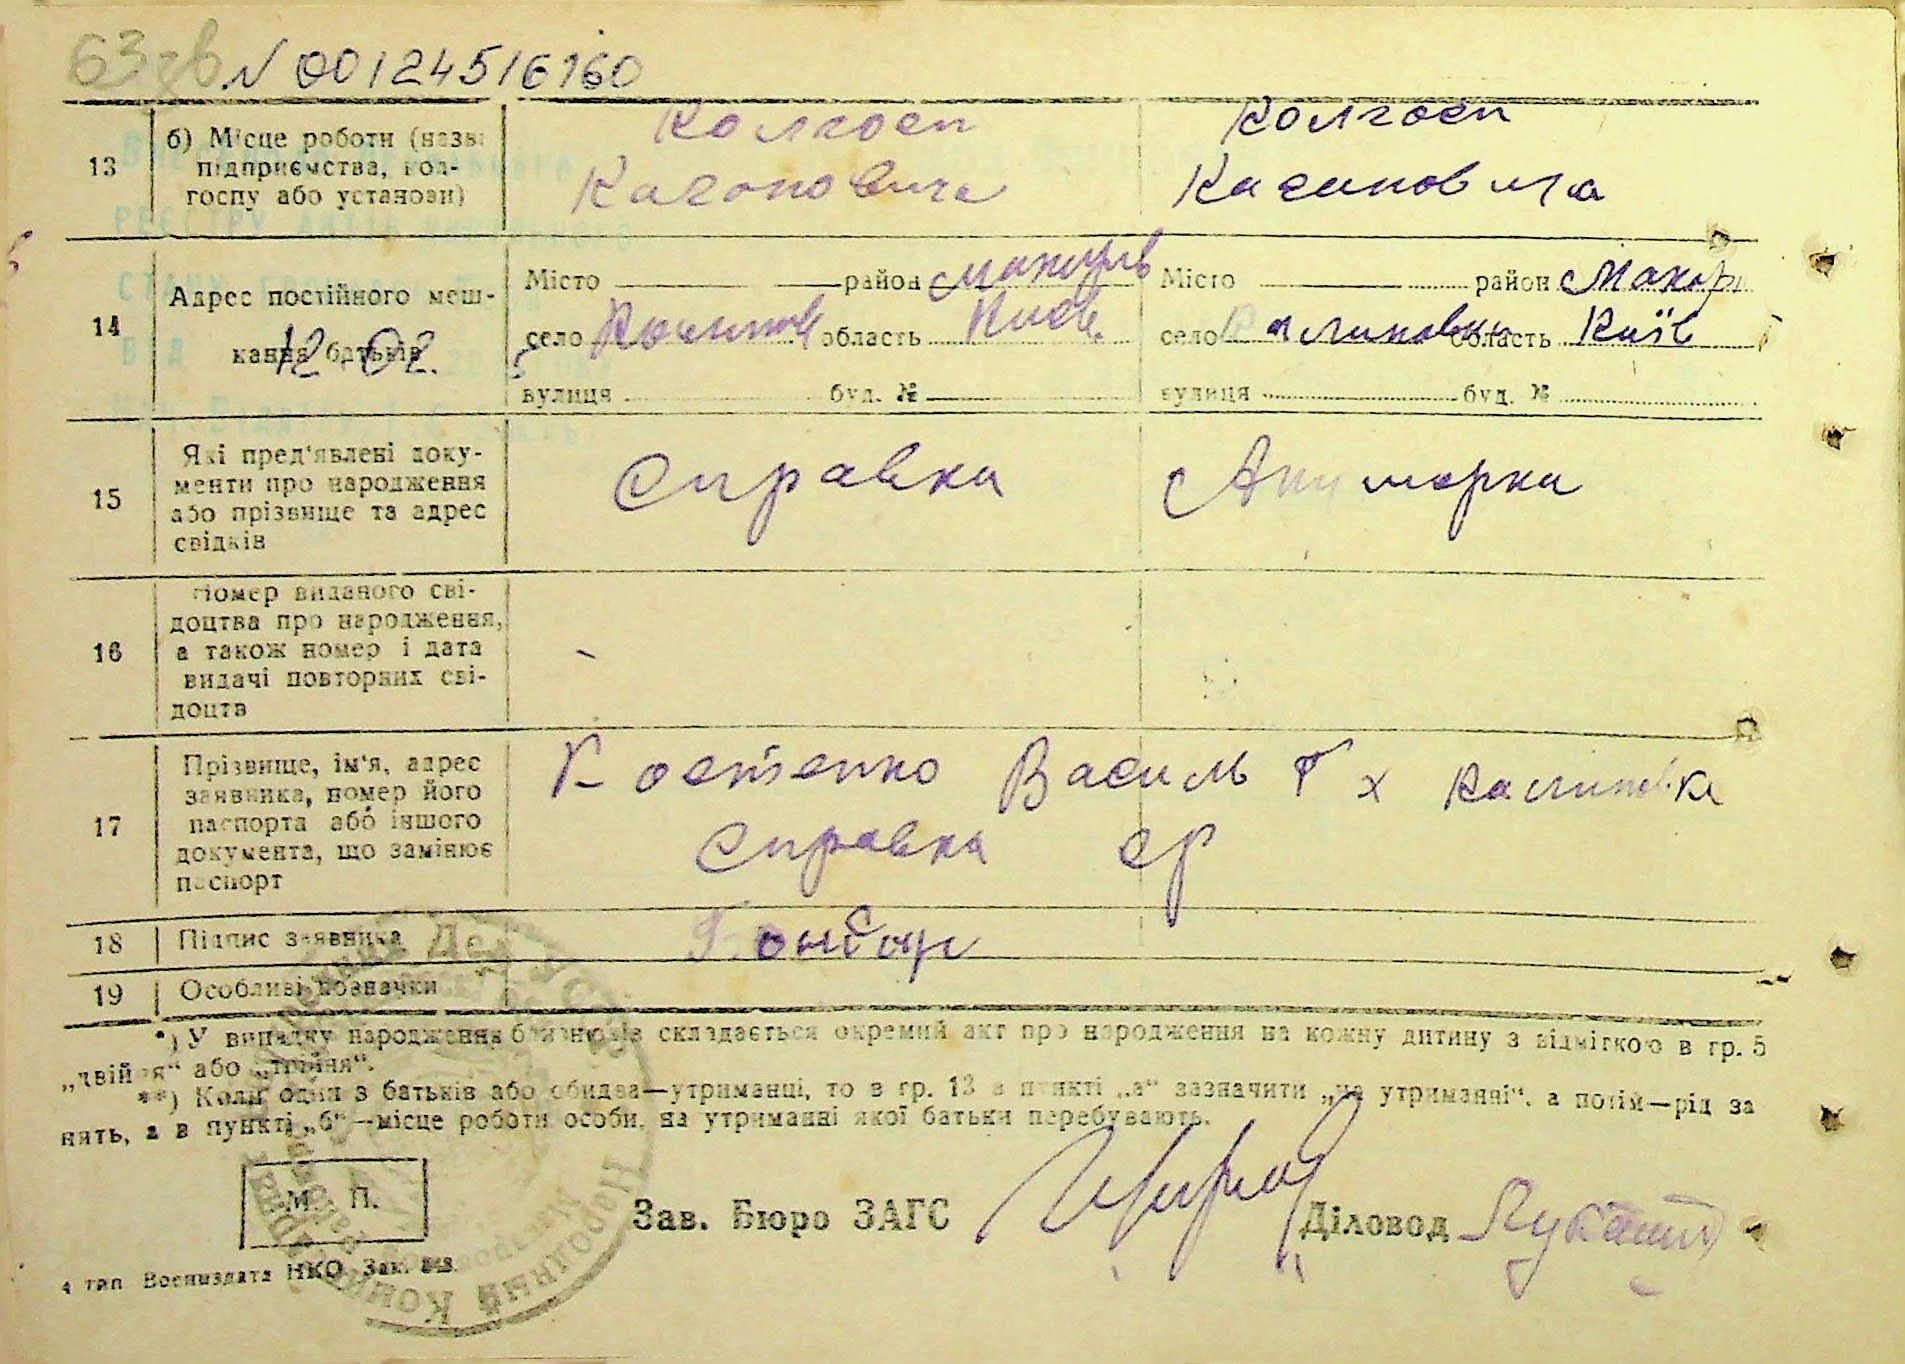 N 00124516160
13
б) Місце роботи (назва
підприємства, кол-
госпу або установи)
Колгосп
Кагановича
Колгосп
Кагановича
14
Адрес постійного меш-
кання батьків
12.02.
Місто район Макарів
село область Київ.
вулиця буд. №
Місто район Макарів
село Калиновка область Київ
вулиця буд. №
15
Які пред'явлені доку-
менти про народження
або прізвище та адрес
свідків
Справка
16
Номер виданого сві-
доцтва про народження,
а також номер і дата
видачі повторних сві-
доцтв
17
Прізвище, ім'я, адрес
заявника, номер його
паспорта або іншого
документа, що замінює
паспорт
Костенко Василь Г х Калиновка
Справка ср
18
Підпис заявника
19
Особливі позначки
*) У випадку народження близнюків складається окремий акт про народження на кожну дитину з відміткою в гр. 5
„двійня“ або „трійня“.
**) Коли один з батьків або обидва—утриманці, то в гр. 13 в пункті „а“ зазначити „на утриманні“, а потім—рід за
нять, а в пункті „б“—місце роботи особи, на утриманні якої батьки перебувають.
М. П.
Зав. Бюро ЗАГС
Діловод
4 тип Воениздата НКО Зак.
Народный Комиссариат